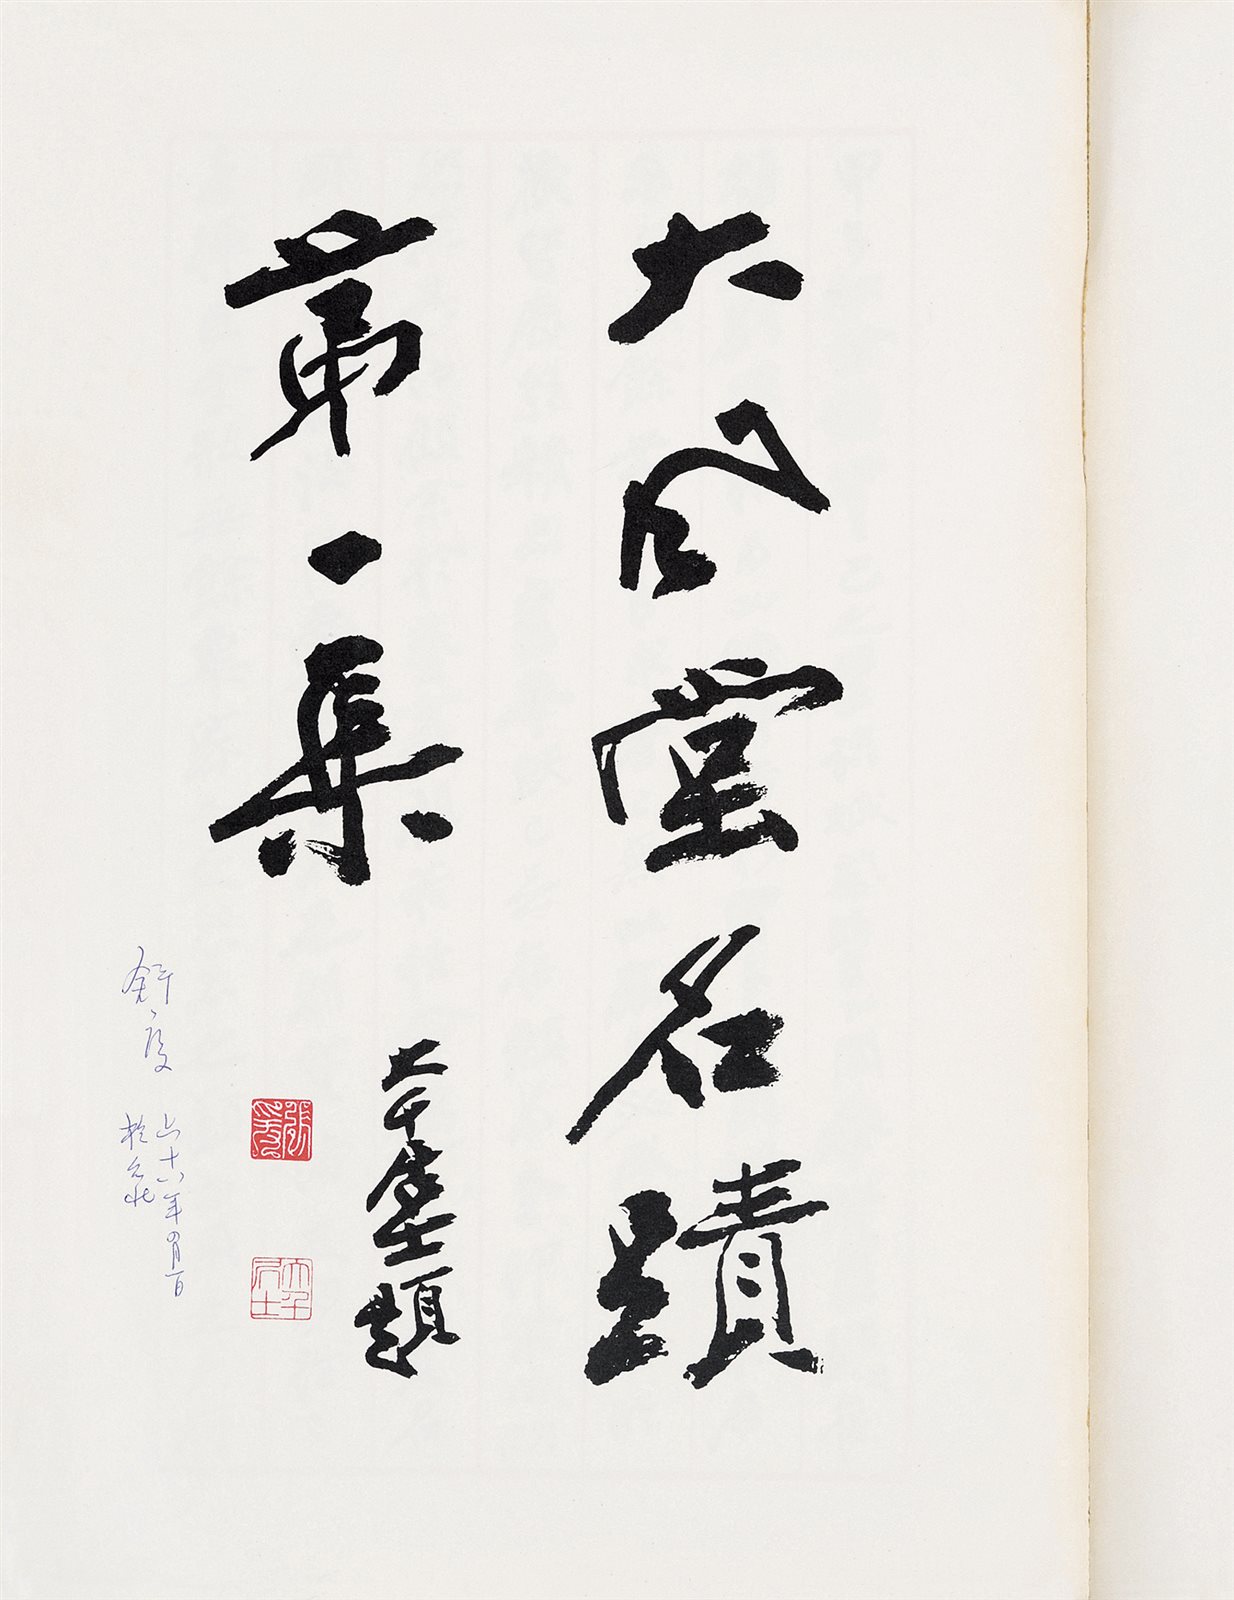 大風堂名蹟
第一集
大千居士題
張爰
大千居士
六十六年四月一日
於台北